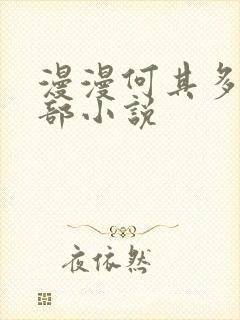 漫漫何其多
部小说
夜依然